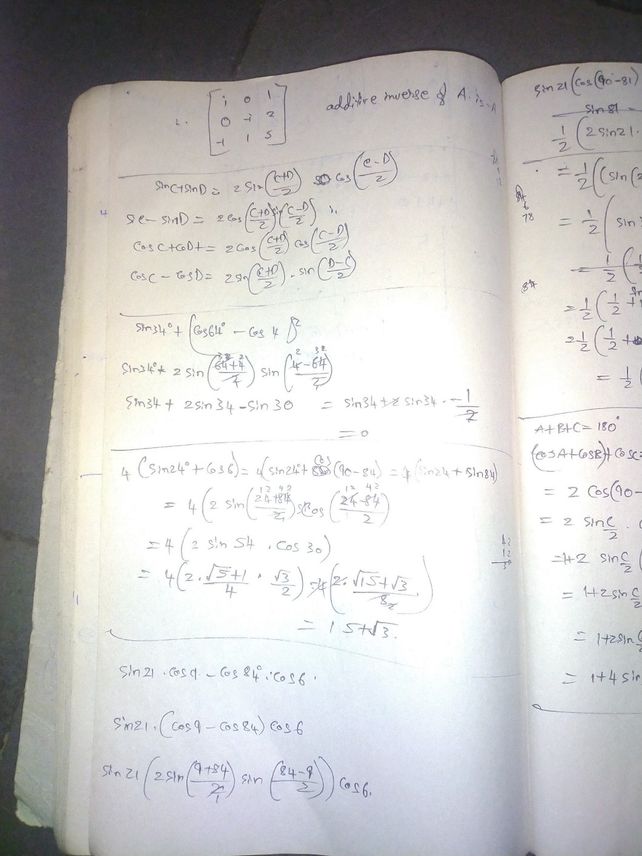 1. [ i 0 1
0 -i 2
-1 1 5 ] additive inverse of A. is -A
sinC+sinD = 2 sin((C+D)/2) cos((C-D)/2)
sc - sinD = 2 cos((C+D)/2) ((C-D)/2)
cosC+coD+ = 2 cos((C+D)/2) cos((C-D)/2)
cosC - cosD = 2 sin((C+D)/2) . sin((D-C)/2)
sin34° + {cos64° - cos 4
sin34° + 2 sin((64+4)/2) sin((4-64)/2)
sin34 + 2 sin34 - sin 30 = sin34 + 2 sin34 . -1/2
= 0
4 (sin24° + cos6) = 4 (sin24° + cos (90-84) = 4 (sin24 + sin84)
= 4 (2 sin((24+84)/2) cos((24-84)/2)
= 4 (2 sin 54 . cos 30)
= 4 (2 . √5+1/4 . √3/2) = 4 (2 . √15+√3/8)
= 15+√3.
sin21 . cos9 - cos84° . cos6 .
sin21 . (cos9 - cos84) cos6
sin21 (2 sin((9+84)/2) sin((84-9)/2)) cos6.
sin21 (cos(90-81)
sin81
1/2 (2 sin21.
= 1/2 ((sin(2
= 1/2 ( sin
= 1/2 (
= 1/2 (1/2 +
= 1/2 (1/2 +
= 1/2 (
A+B+C = 180°
(cosA+cosB)+cosC =
= 2 cos(90-
= 2 sin C/2 .
= 1+2 sin C/2 (
= 1+2 sin C/2
= 1+2 sin
= 1+4 sin